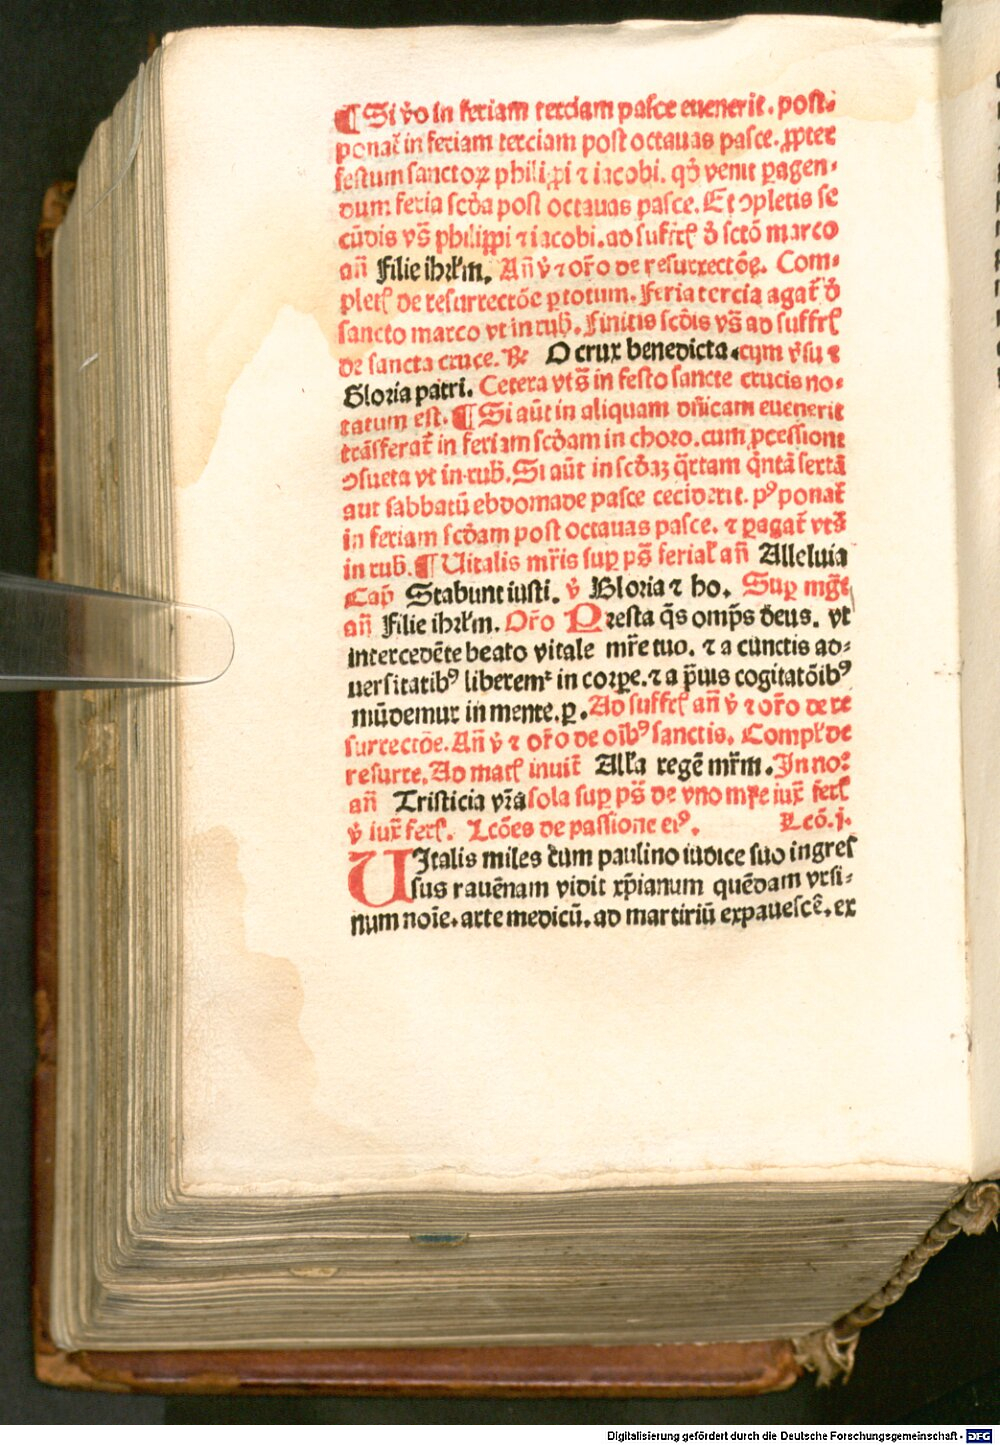 ¶ Si v̄o in feriam terciam pasce euenerit. post-
ponat̄ in feriam terciam post octauas pasce. ꝓpter
festum sanctoꝝ philippi ⁊ iacobi. qđ venit ꝑagen-
dum feria scđa post octauas pasce. Et ꝯpletis se
cūdis vs̄ philippi ⁊ iacobi. ad suffrꝭ đ sctō marco
an̄ Filie ihrłm. An̄ v̄ ⁊ or̄o de resurrectōe. Com-
pletꝭ de resurrectōe ꝑ totum. Feria tercia agat̄ đ
sancto marco vt in rub̄. Finitis scđis vs̄ ad suffrꝭ
de sancta cruce. ℟ O crux benedicta. cum v̄su ⁊
Gloria patri. Cetera vts̄ in festo sancte crucis no-
tatum est. ¶ Si aūt in aliquam dn̄icam euenerit
trāsferat̄ in feriam scđam in choro. cum ꝓcessione
ꝯsueta vt in rub̄. Si aūt in scđaꝫ q̄rtam q̄ntā sextā
aut sabbatū ebdomade pasce ceciderit. pꝰponat̄
in feriam scđam post octauas pasce. ⁊ ꝑagat̄ vts̄
in rub̄. ¶ Uitalis mr̄is suꝑ ps̄ ferial̄ an̄ Alleluia
Cap̄ Stabunt iusti. v̄ Gloria ⁊ ho. Suꝑ mḡt
an̄ Filie ihrłm. Or̄o Presta q̄s omp̄s đeus. vt
intercedēte beato vitale mr̄e tuo. ⁊ a cunctis ad-
uersitatibꝰ liberemᷣ in corꝑe. ⁊ a p̄uis cogitatōibꝰ
mūdemur in mente. ꝑ. Ad suffrꝭ an̄ v̄ ⁊ or̄o de re
surrectōe. An̄ v̄ ⁊ or̄o de oībꝰ sanctis. Compł de
resurre. Ad matꝭ inuit̄ Alła regē mr̄m. In noꝯ
an̄ Tristicia vr̄a sola suꝑ ps̄ de vno mr̄e iux̄ ferꝭ
v̄ iux̄ ferꝭ. Lcōes de passione eiꝰ. Lcō. j.
UItalis miles cum paulino iudice suo ingres
sus rauēnam vidit xp̄ianum quēdam vrsi-
num noīe. arte medicū. ad martiriū expauescē. ex
Digitalisierung gefördert durch die Deutsche Forschungsgemeinschaft - DFG